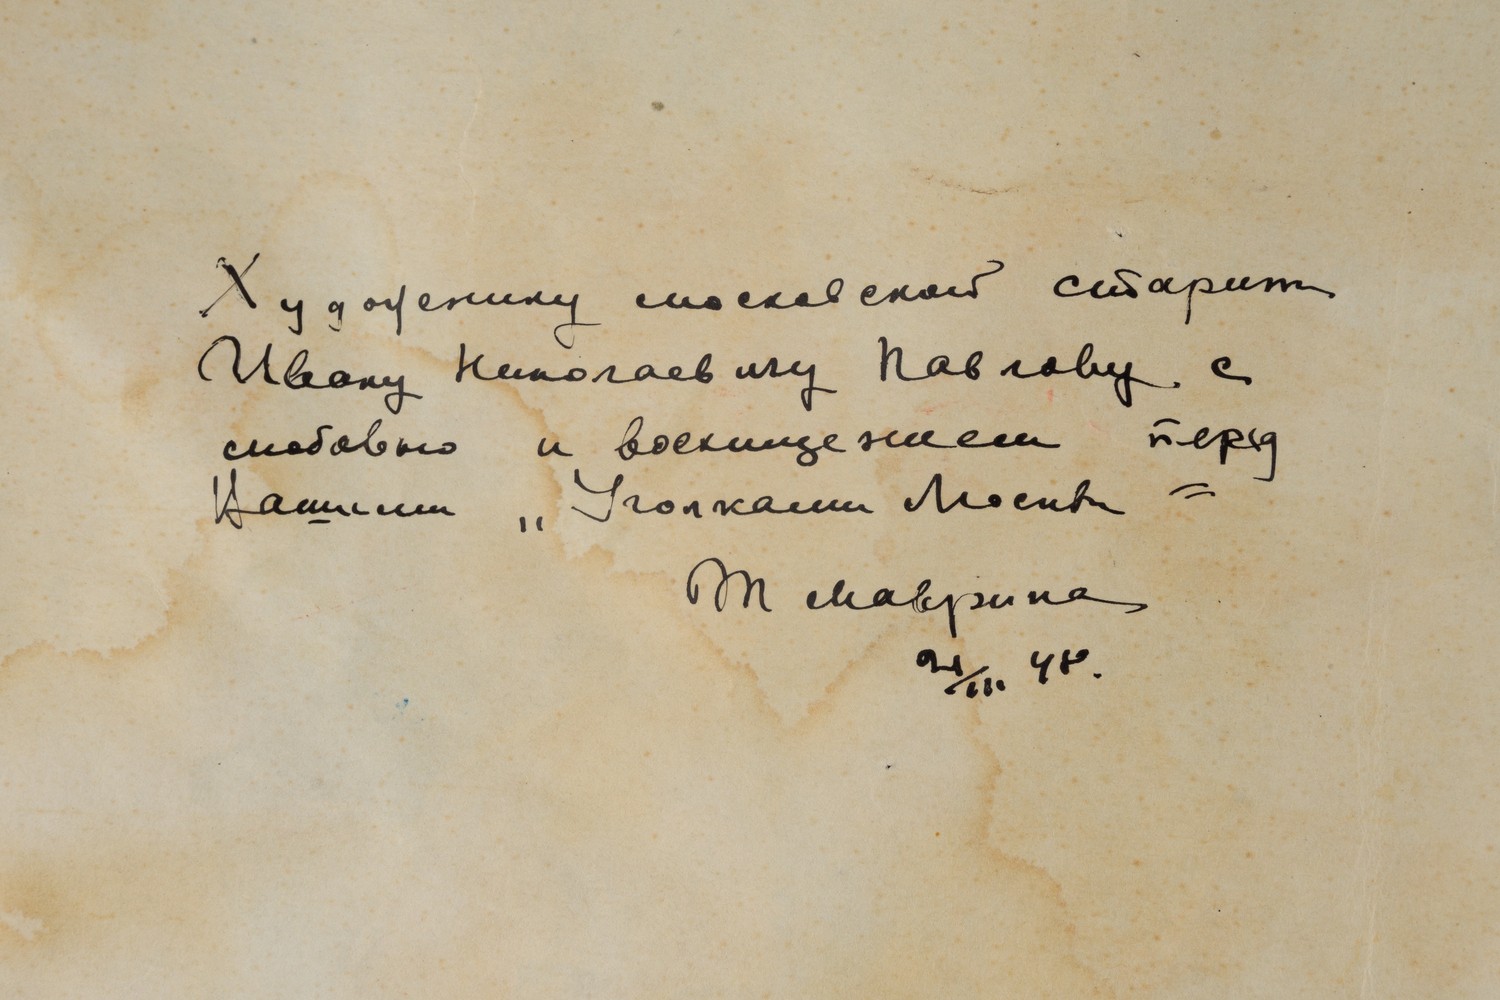 Художнику московской старины
Ивану Николаевичу Павлову с
любовью и восхищением перед
Вашими „Уголками Москвы"
Т Маврина
/III 48.